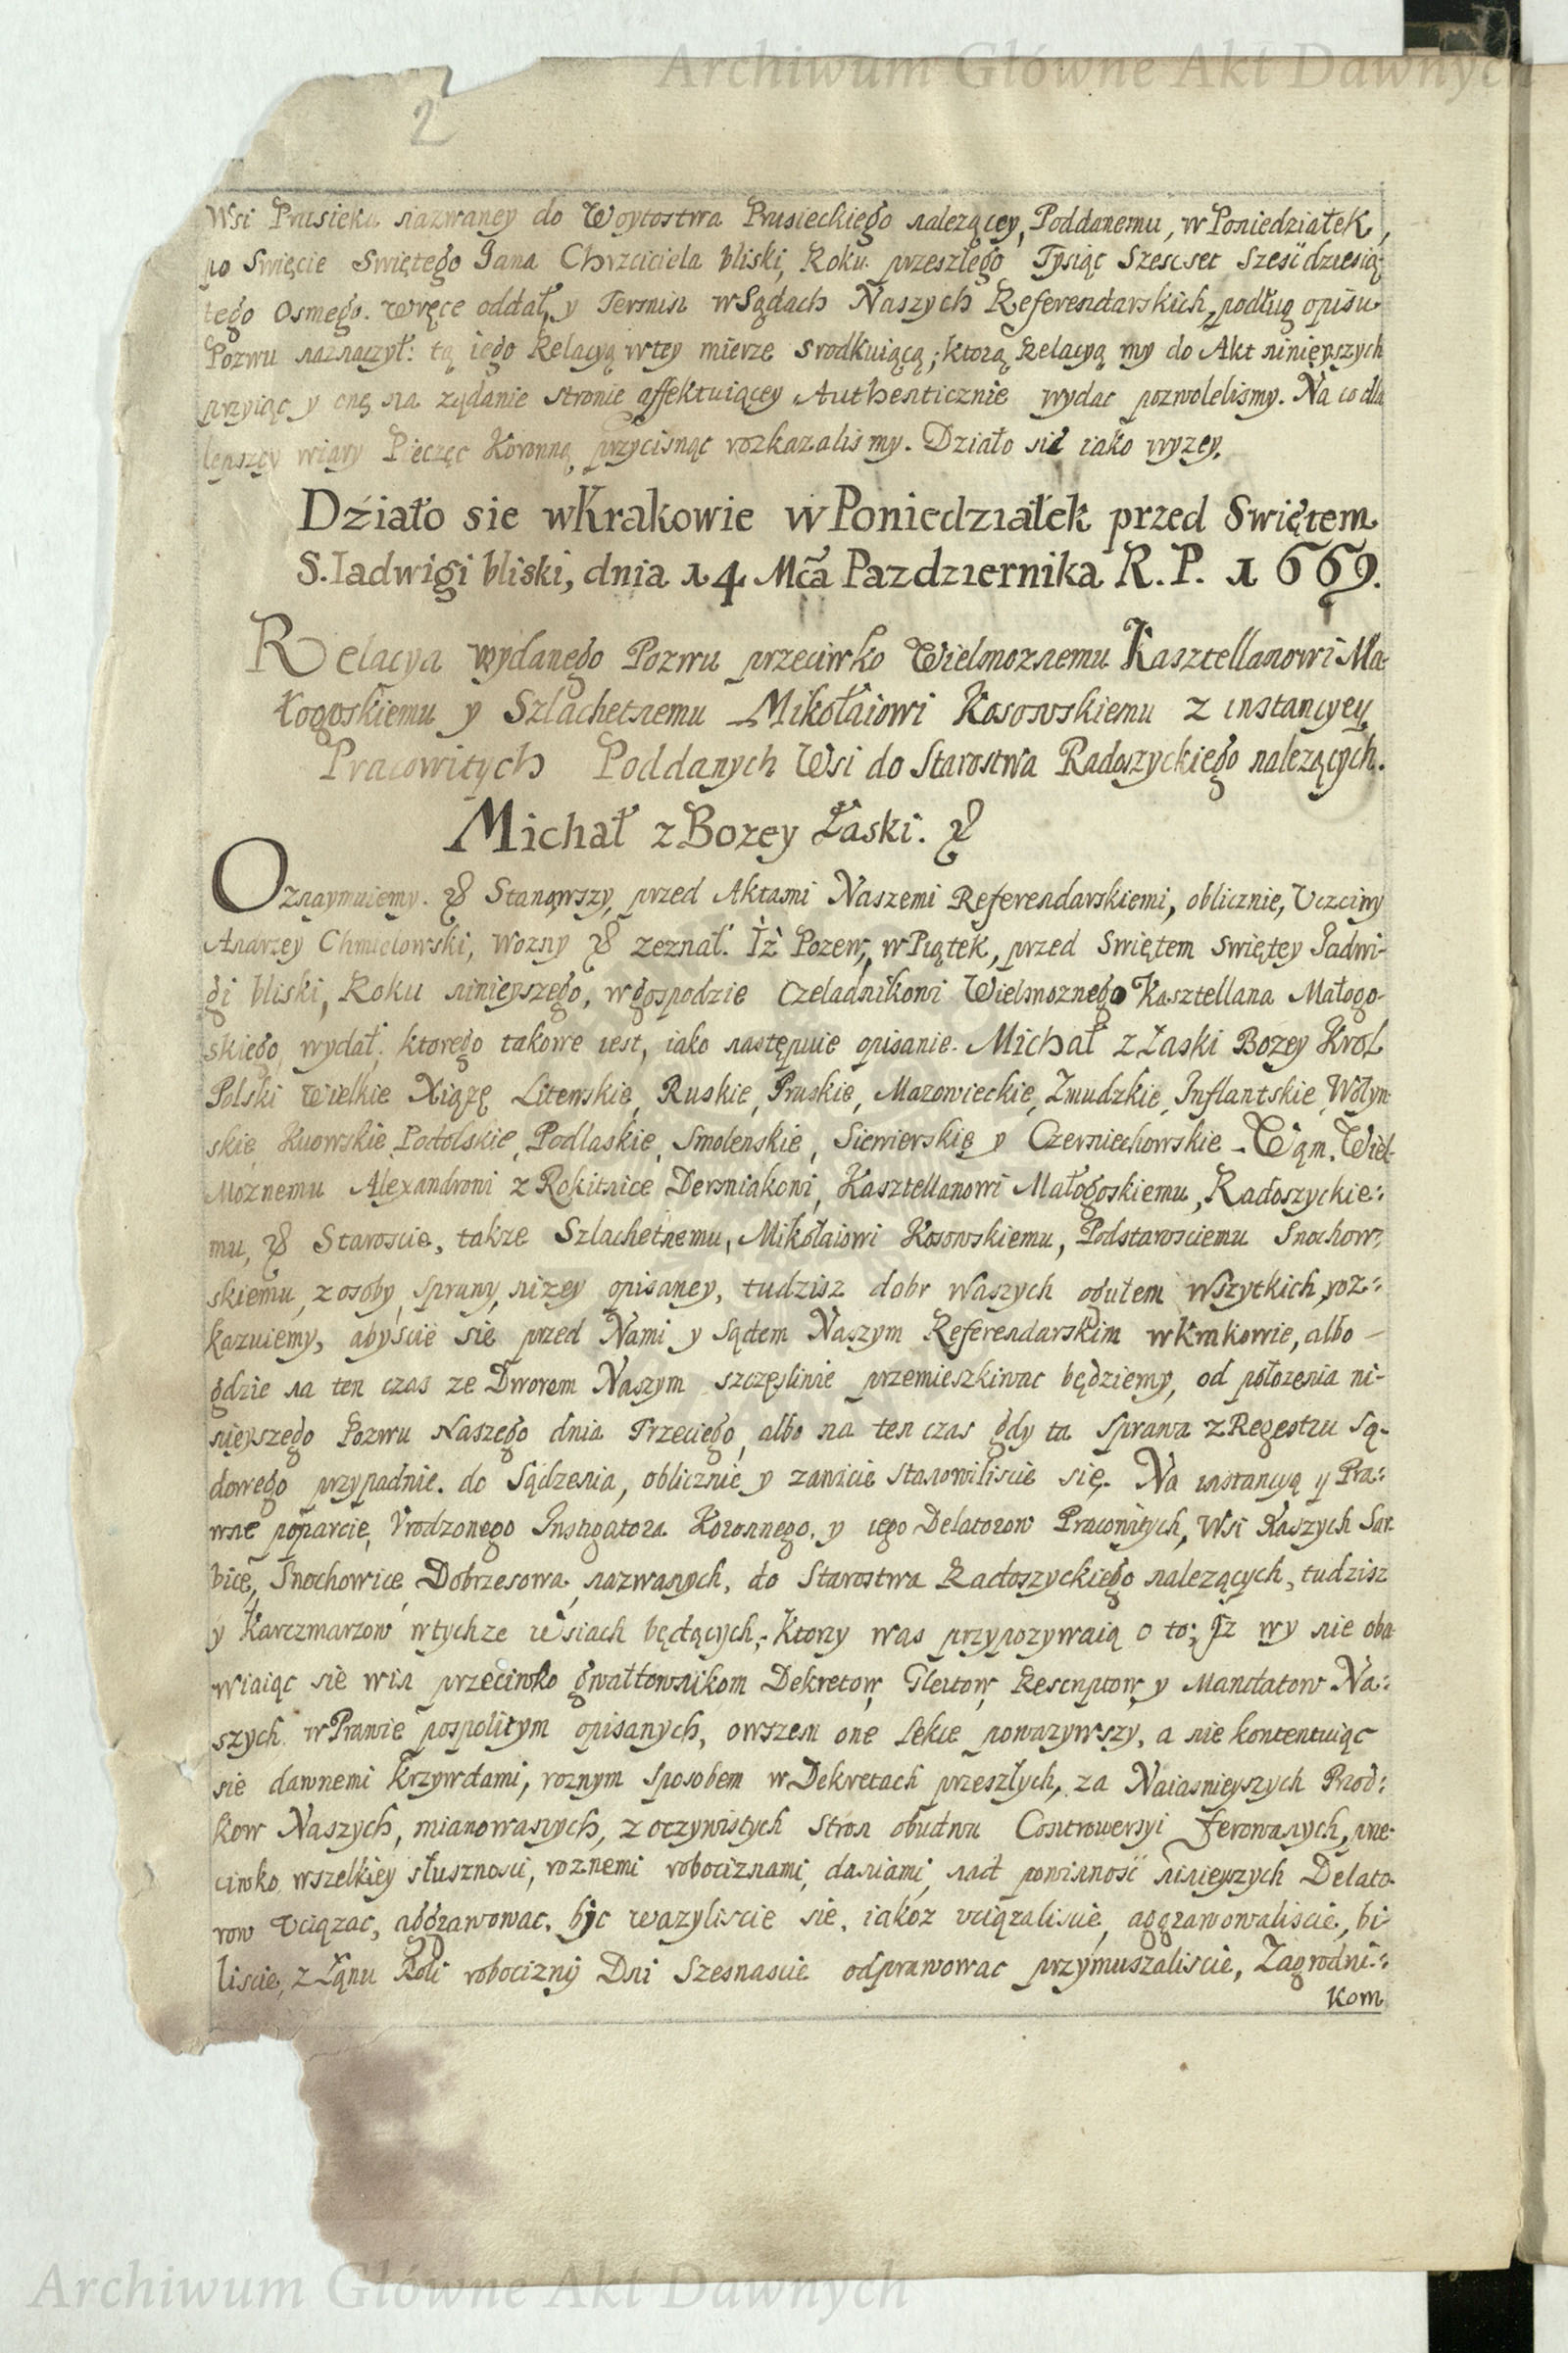 Archiwum Główne Akt Dawnych
2
Wsi Prusieku nazwaney do Woytostwa Prusieckiego nalezącey, Poddanemu, w Poniedziałek,
po Swięcie Swiętego Jana Chrzciciela bliski, Roku przeszłego Tysiąc Szescset Sześćdziesią-
tego Osmego. wręce oddał, y Termin w Sądach Naszych Referendarskich, podług opisu
Pozwu naznaczył: tą iego Relacyą wtey mierze srodkuiącą; ktorą Relacyą my do Akt ninieyszych
przyiąc y onę na ządanie stronie affektuiącey Authenticznie wydac pozwolelismy. Na co dla
lepszey wiary Pieczęc Koronną przycisnąc rozkazalismy. Działo się iako wyzey.
Działo sie wKrakowie w Poniedziałek przed Swiętem
S. Iadwigi bliski, dnia 14 Mcã Pazdziernika R. P. 1669.
Relacya wydanego Pozwu przeciwko Wielmoznemu Kasztellanowi Ma-
łogoskiemu y Szlachetnemu Mikołaiowi Kosowskiemu z instancyey
Pracowitych Poddanych Wsi do Starostwa Radoszyckiego nalezących.
Michał z Bozey Łaski. &
Oznaymuiemy. & Stanąwszy, przed Aktami Naszemi Referendarskiemi, oblicznie, Uczciwy
Andrzey Chmielowski, wozny & zeznał. Iż Pozew, w Piątek, przed Swiętem Swiętey Jadwi-
gi bliski, Roku ninieyszego, w gospodzie Czeladnikowi Wielmoznego Kasztellana Małogo-
skiego, wydał, ktorego takowe iest, iako następuie opisanie. Michał z Łaski Bozey Krol
Polski Wielkie Xiązę Litewskie, Ruskie, Pruskie, Mazowieckie, Zmudzkie, Inflantskie, Wołyn-
skie, Kiiowskie, Podolskie, Podlaskie, Smolenskie, Siewierskię y Czerniechowskie - Wąm. Wiel-
moznemu Alexandrowi z Rokitnice Derszniakowi, Kasztellanowi Małogoskiemu, Radoszyckie:
mu, & Staroscie, takze Szlachetnemu, Mikołaiowi Kosowskiemu, Podstarosciemu Snochow:
skiemu, z osoby, sprawy, nizey opisaney, tudzisz dobr waszych ogułem wszytkich, roz:
kazuiemy, abyście sie przed Nami y Sądem Naszym Referendarskim w Krakowie, albo —
gdzie na ten czas ze Dworem Naszym szczęsliwie przemieszkiwac będziemy, od połozenia ni-
nieyszego Pozwu Naszego dnia Trzeciego, albo na ten czas gdy ta sprawa z Regestru Są-
dowego przypadnie. do sądzenia, oblicznie y zawicie stanowiliscie się. Na instancyą y Pra:
wne poparcie, Urodzonego Instigatora Koronnego, y iego Delatorow Pracowitych, Wsi Naszych Sar-
bice, Snochowice Dobrzesowa, nazwanych, do Starostwa Radoszyckiego nalezących, tudzisz
y Karczmarzow wtychze wsiach będących; Ktorzy was przypozywaią o to; Iz wy nie oba-
wiaiąc sie win przeciwko gwałtownikom Dekretow, Gleitow, Rescriptow, y Mandatow Na:
szych w Prawie pospolitym opisanych, owszem one lekce powazywszy, a nie kontentuiąc
sie dawnemi Krzywdami, roznym sposobem w Dekretach przeszłych, za Naiasnieyszych Przod:
kow Naszych, mianowanych, z oczywistych stron obudwu Controwersyi ferowanych, prze-
ciwko wszelkiey słusznosci, roznemi robociznami, daniami, nad powinność ninieyszych Delato-
row Uciązac, aggrawowac, bic wazyliscie sie, iakoz uciązaliscie, aggrawowaliscie, bi-
liscie, z Łanu Roli robocizny Dni Szesnascie odprawowac przymuszaliscie, Zagrodni:
kom
Archiwum Główne Akt Dawnych